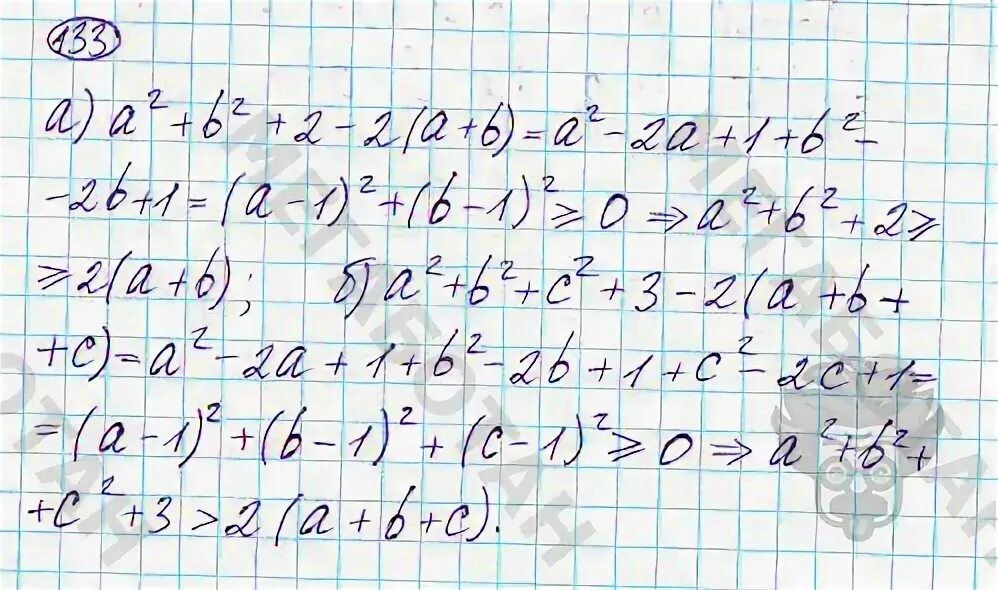 133
а) a² + b² + 2 - 2(a + b) = a² - 2a + 1 + b² -
- 2b + 1 = (a - 1)² + (b - 1)² ⩾ 0 ⇒ a² + b² + 2 ⩾
⩾ 2(a + b); б) a² + b² + c² + 3 - 2(a + b +
+ c) = a² - 2a + 1 + b² - 2b + 1 + c² - 2c + 1 =
= (a - 1)² + (b - 1)² + (c - 1)² ⩾ 0 ⇒ a² + b² +
+ c² + 3 > 2(a + b + c).
МЕГАБОТАН
МЕГАБОТАН